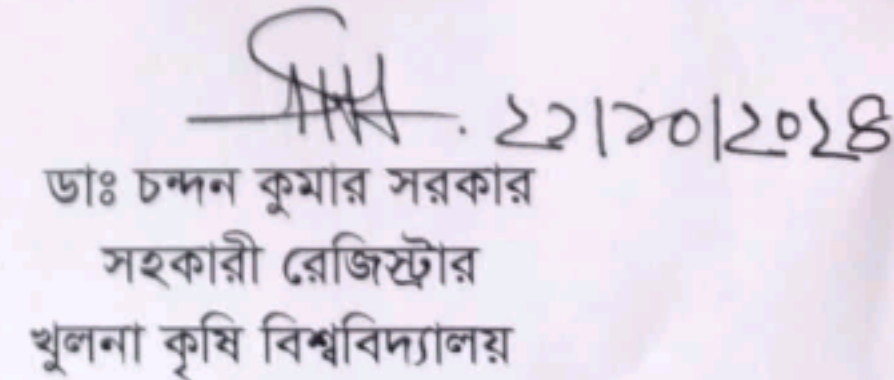 ২২|১০|২০২৪
ডাঃ চন্দন কুমার সরকার
সহকারী রেজিস্ট্রার
খুলনা কৃষি বিশ্ববিদ্যালয়